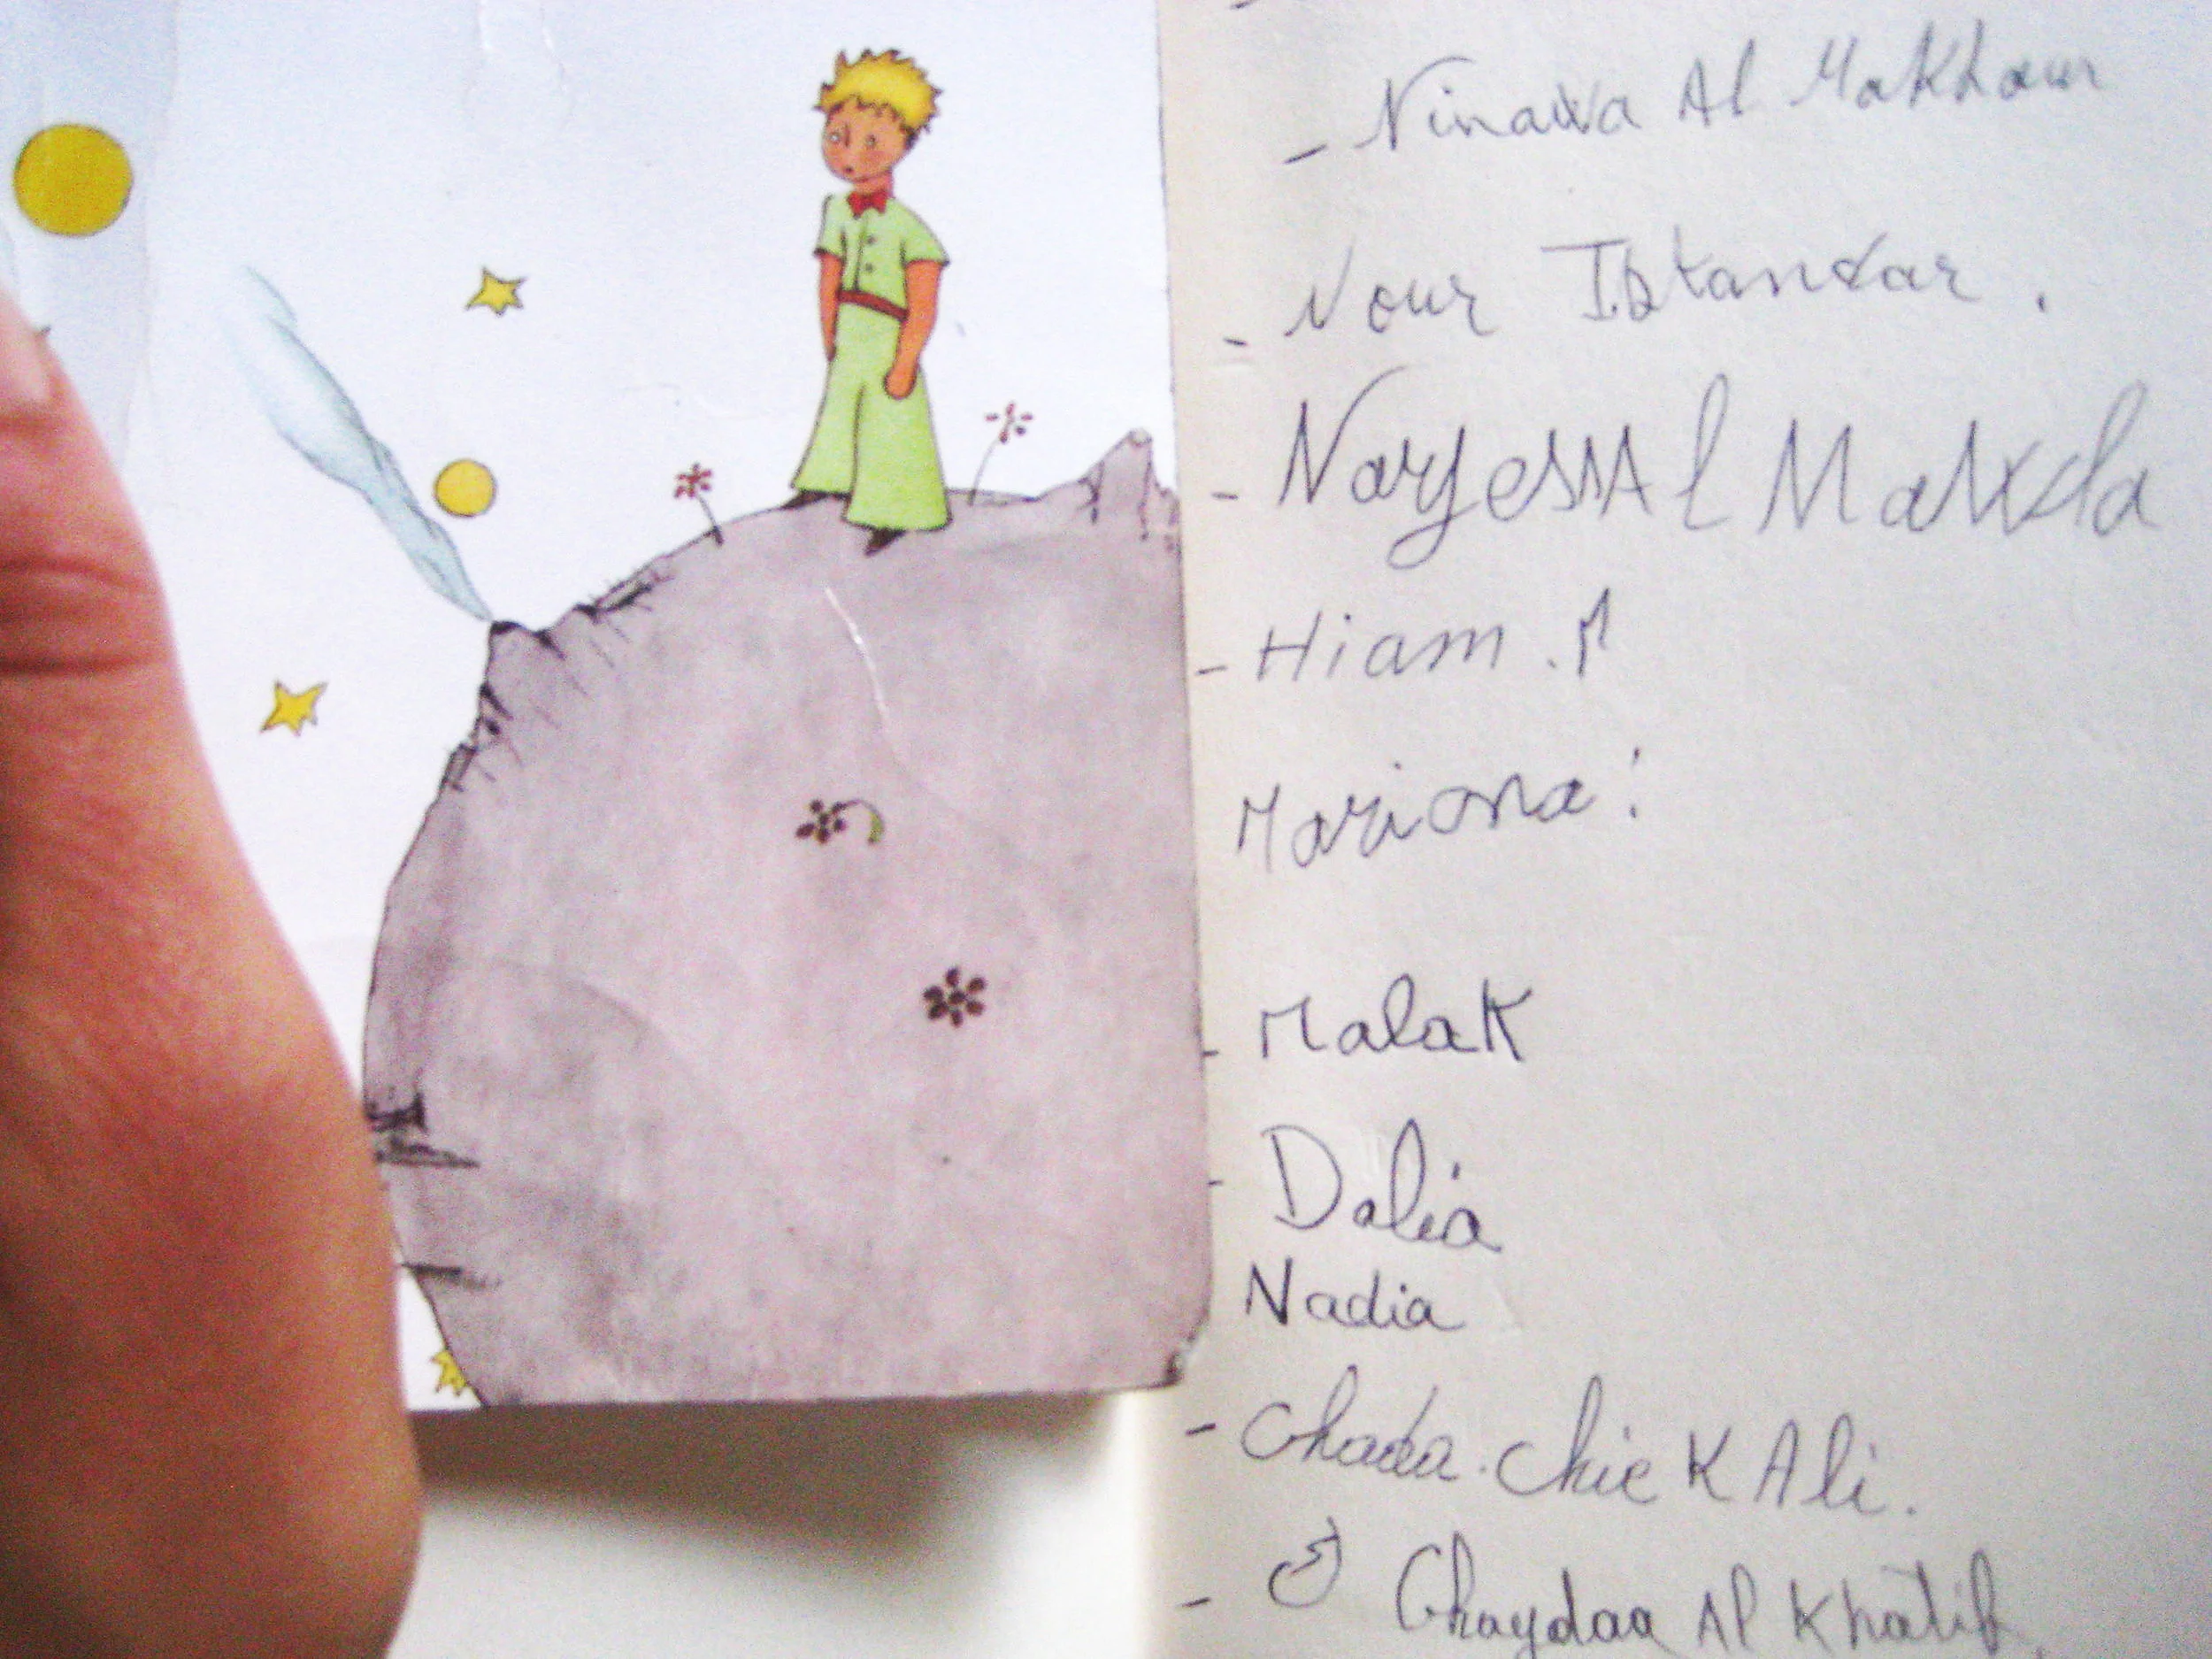 - Ninawa Al Makhour
- Nour Iskandar.
- Narjess Al Makda
- Hiam.M
Mariana!
- Malak
- Dalia
Nadia
- Ghada. Chiek Ali.
- Ghaydaa Al Khatib